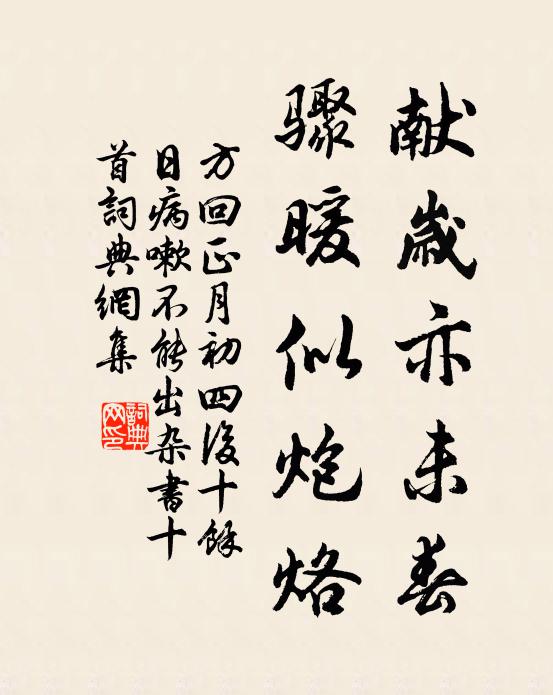 献歲亦未春
骤暖似炮烙
方回正月初四後十餘
日病嗽不能出杂書十
首詞典網集
詞典网印